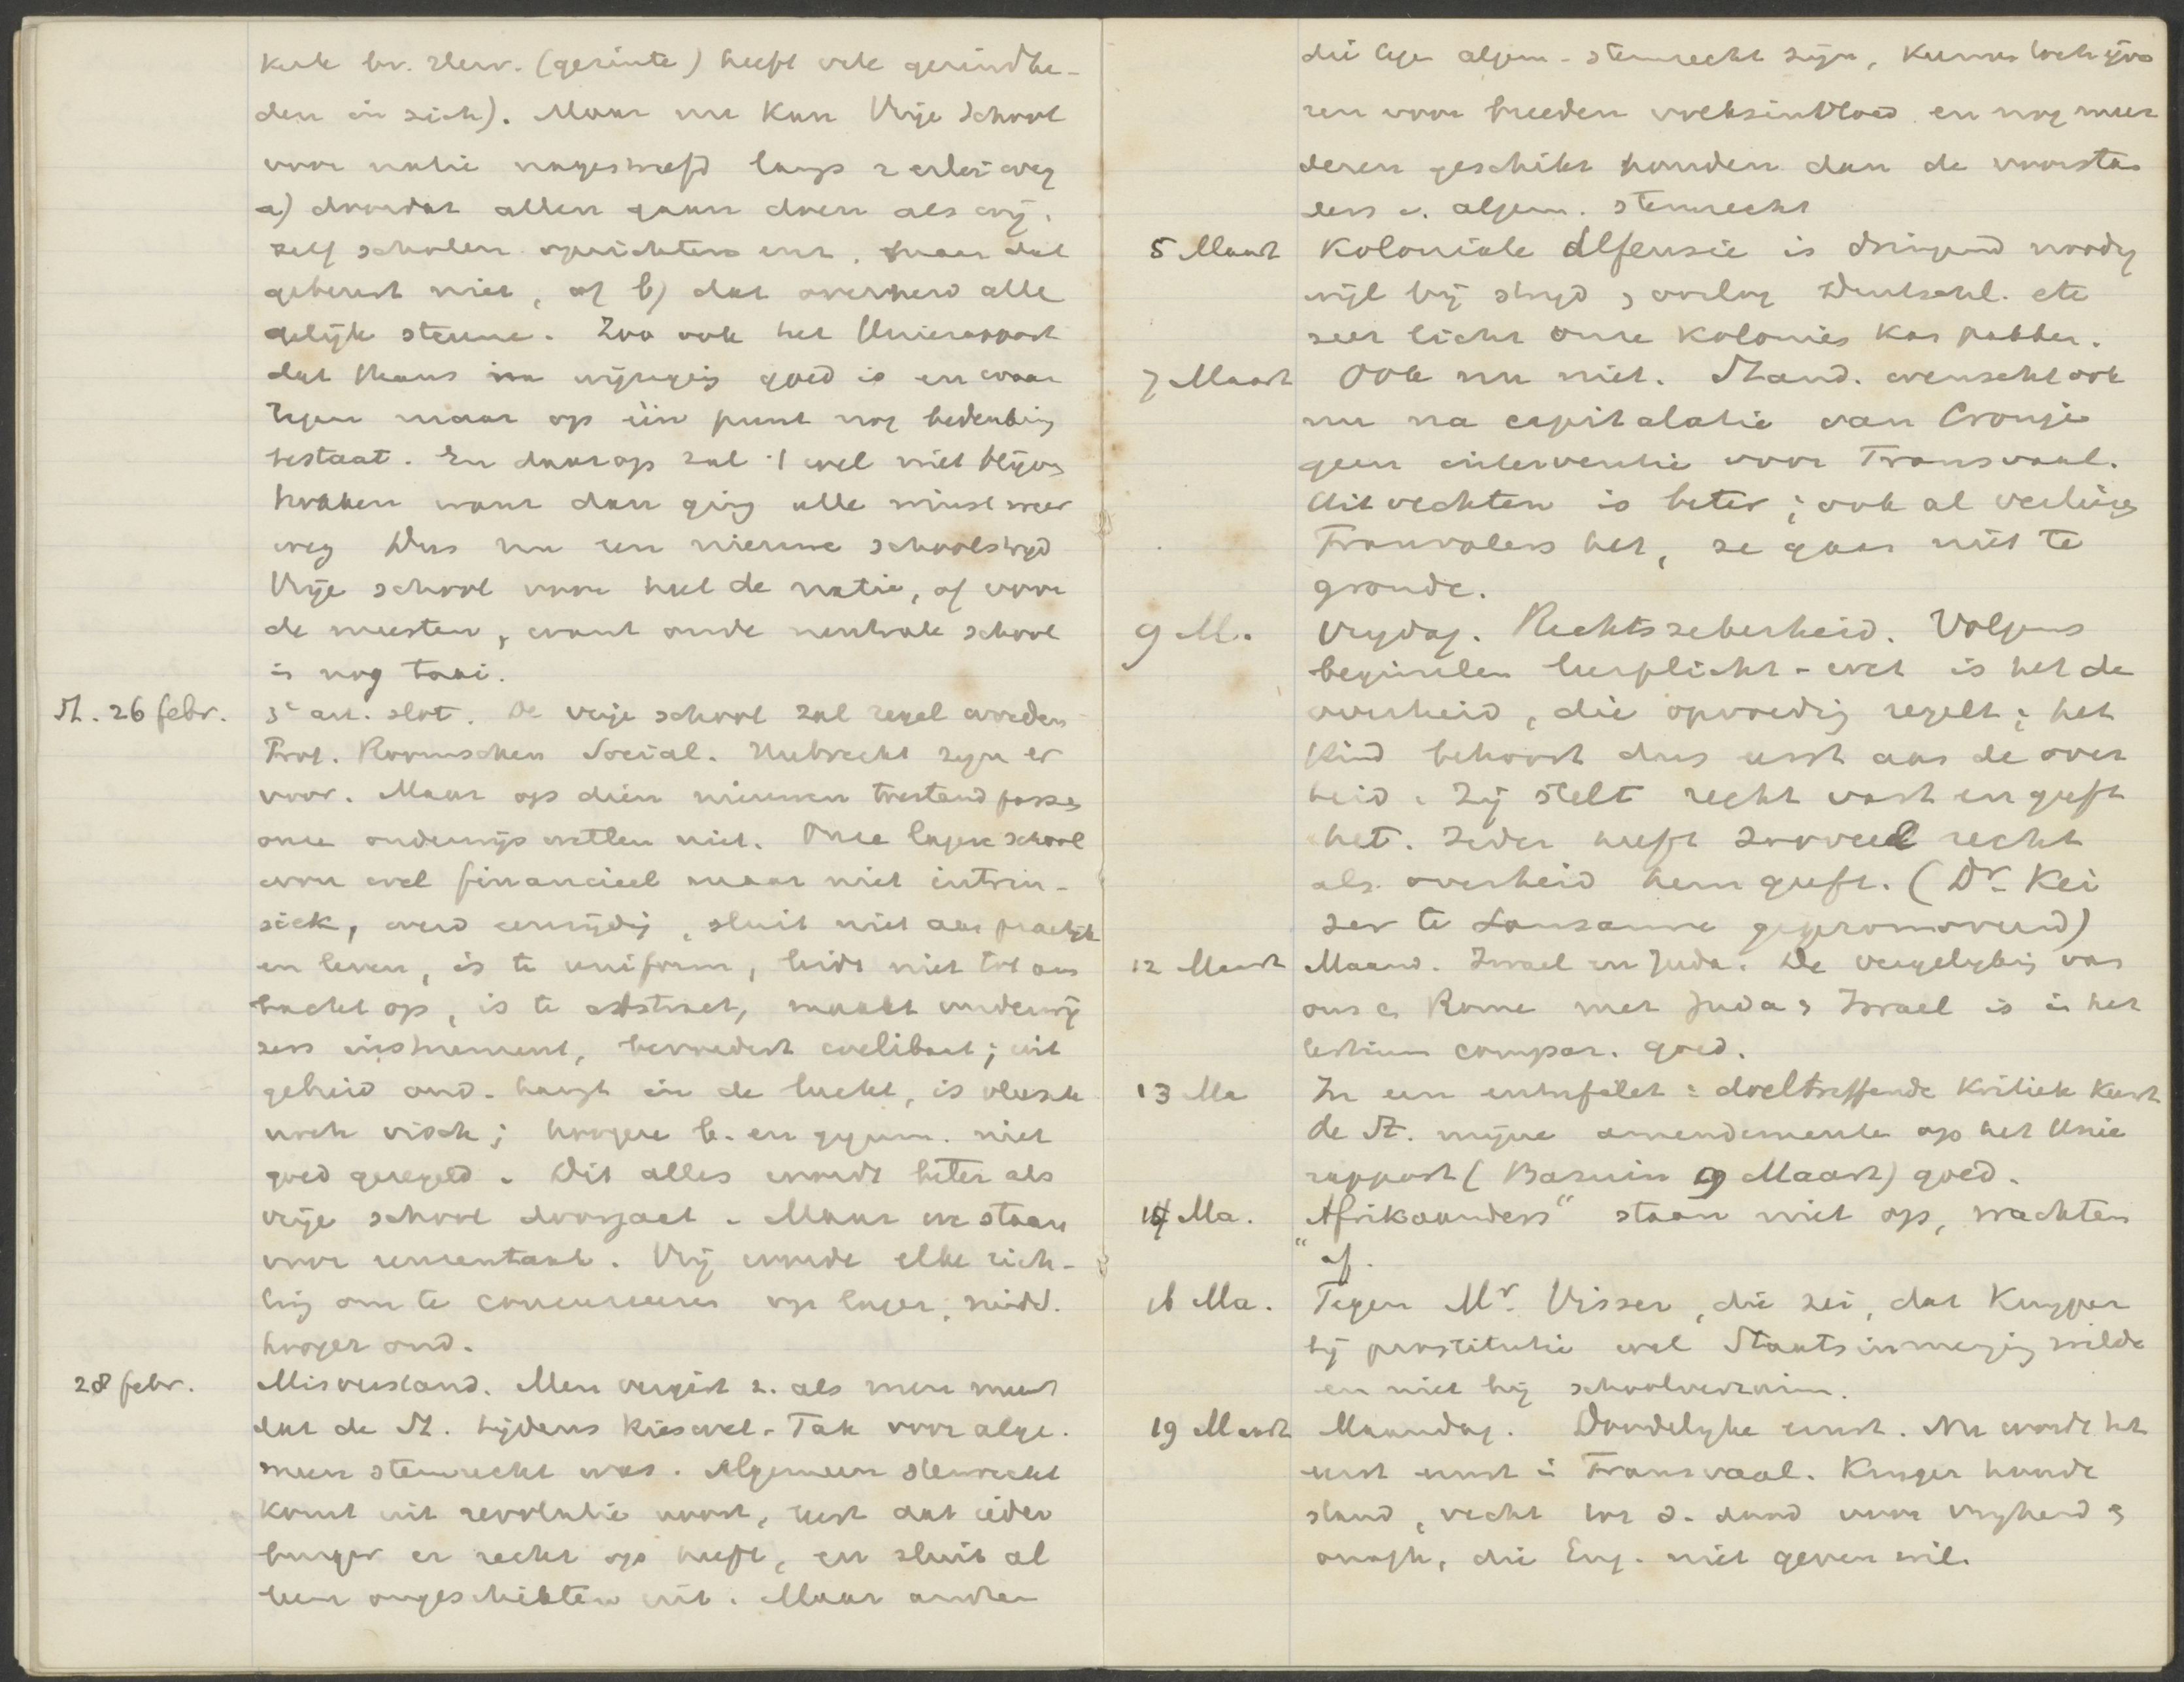 kerk bv. Herv. (gezinte) heeft vele gezindhe-
den in zich). Maar nu kan Vrije School
voor natie nagestreefd langs 2 erlei weg
a) doordat allen gaan doen als wij,
zelf scholen oprichten enz. maar dat
gebeurt niet, of b) dat overheid alle
gelijk steune. Zoo ook het Unierapport
dat thans na wijziging goed is en waar
tegen maar op één punt nog bedenking
bestaat. En daarop zal 't wel niet blijven
haken want dan ging alle winst weer
weg Dus nu een nieuwe schoolstrijd
Vrije school voor heel de natie, of voor
de meesten, want oude neutrale school
is nog taai.
St. 26 febr. 3e art. slot. De vrije school zal regel worden
Prot. Roomschen Social. Hubrecht zijn er
voor. Maar op dien nieuwen toestand passen
onze onderwijs wetten niet. Onze lagere school
won wel financieel maar niet intrin-
siek, werd eenzijdig, sluit niet aan practijk
en leven, is te uniform, leidt niet tot am
bacht op, is te abstract, maakt onderwij
zers instrument, bevordert coelibaat; uit
gebreid ond. hangt in de lucht, is vleesch
noch visch; hoogere b. en gymn. niet
goed geregeld. Dit alles wordt beter als
vrije school doorgaat. Maar we staan
voor reuzentaak. Vrij worde elke rich-
ting om te concurreeren op lager, midd.
hooger ond.
28 febr. Misverstand. Men vergist z. als men meent
dat de St. tijdens kieswet-Tak voor alge.
meen stemrecht was. Algemeen stemrecht
komt uit revolutie voort, zegt dat ieder
burger er recht op heeft, en sluit al
leen ongeschikten uit. Maar andren
die tegen algem. stemrecht zijn, kunnen toch ijve
ren voor breeden volksinvloed en nog meer
deren geschikt houden dan de voorstan
ders v. algem. stemrecht
5 Maart Koloniale defensie is dringend noodig
wijl bij strijd, oorlog Duitschl. etc
zeer licht onze kolonies kan pakken.
7 Maart Ook nu niet. Stand. wenscht ook
nu na capitalatie van Cronjé
geen interventie voor Transvaal.
Uitvechten is beter; ook al verliezen
Transvalers het, ze gaan niet te
gronde.
9 M. Vrydag. Rechtszekerheid. Volgens
beginselen leerplicht-wet is het de
overheid, die opvoeding regelt; het
kind behoort dus eerst aan de over
heid. Zij stelt recht vast en geeft
het. Ieder heeft zooveel recht
als overheid hem geeft. (Dr. Kei
zer te Lausanne gepromoveerd)
12 Maart Maand. Israel en Juda. De vergelyking van
ons en Rome met Juda & Israel is in het
tertium compar. goed.
13 Ma In een entrefilet: doeltreffende kritiek keurt
de St. mijne amendementen op het Unie
rapport (Bazuin 9 Maart) goed.
14 Ma. "Afrikaanders" staan niet op, wachten
af.
16 Ma. Tegen Mr. Visser, die zei, dat Kuyper
bij prostitutie wel Staatsinmenging wilde
en niet bij schoolverzuim.
19 Maart Maandag. Doodelyke ernst. Nu wordt het
eerst ernst in Transvaal. Kruger houde
stand, vecht tot d. dood voor vryheid &
onafh., die Eng. niet geven wil.